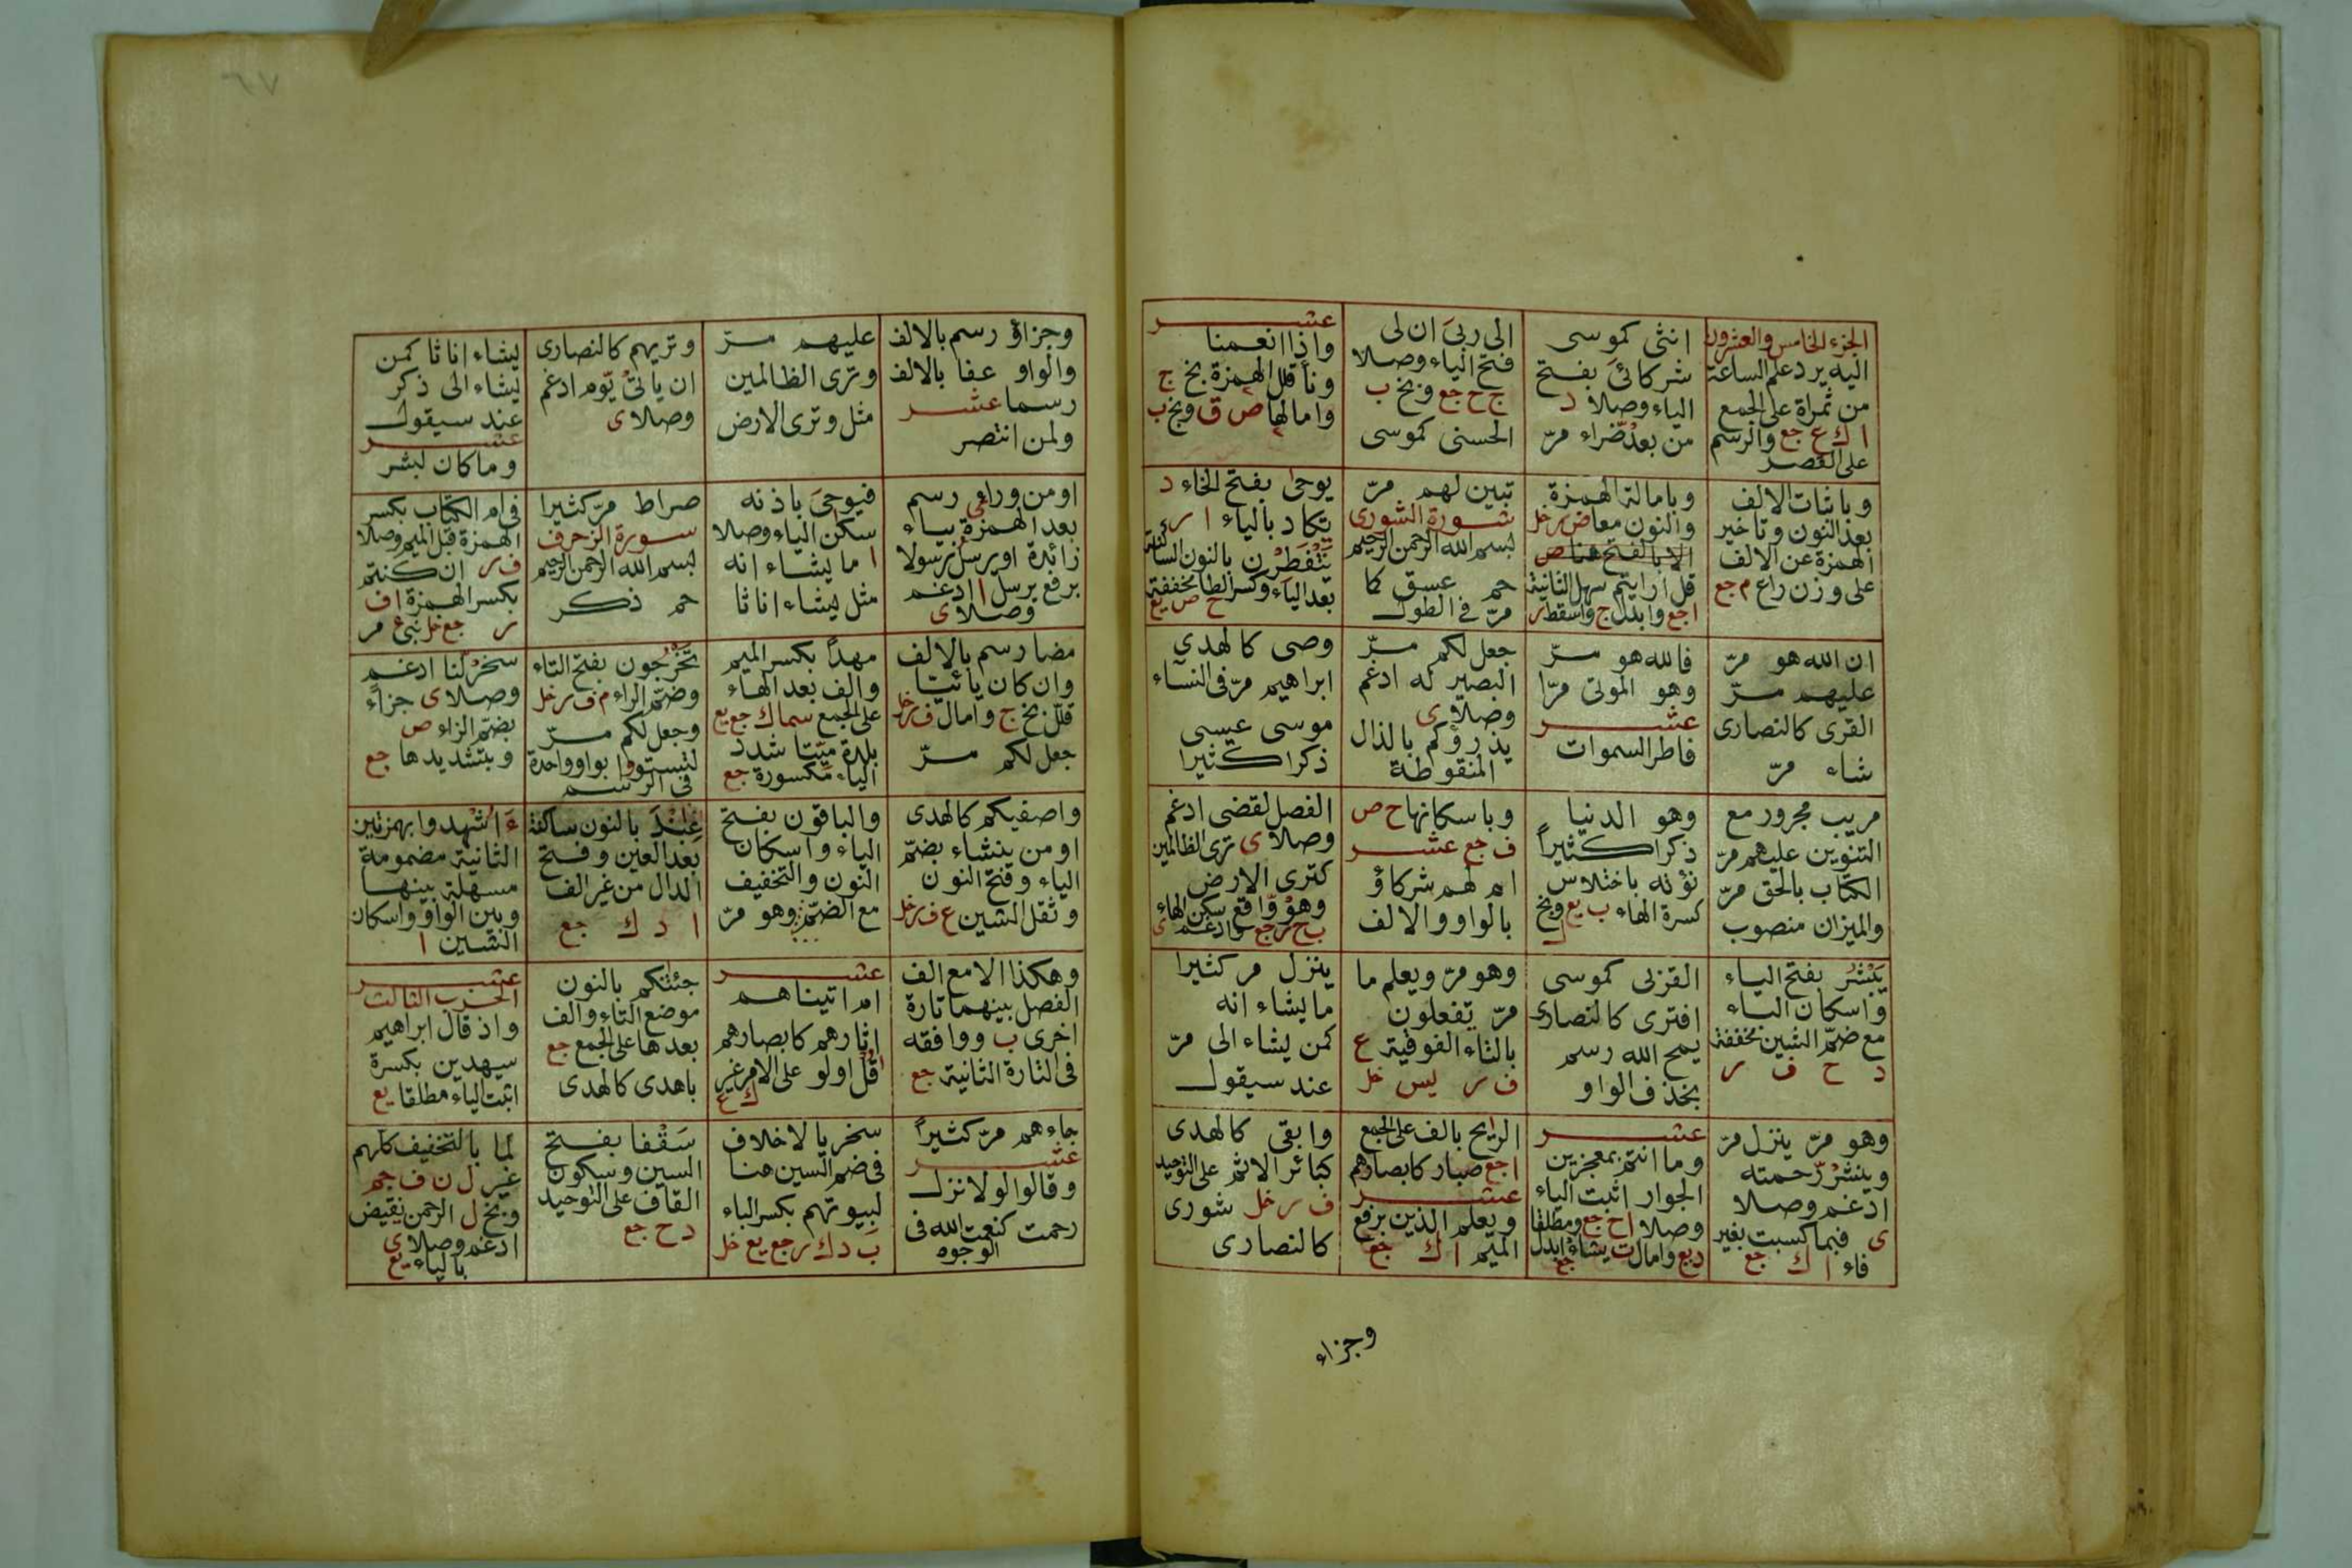 الجزء الخامس والعشرون
اليه يرد علم الساعة
من ثمراة على الجمع
ا ك ع جع والرسم
على القصر
انثى كموسى
شركائ بفتح
الياء وصلا د
من بعد ضراء مرّ
الى ربى ان لى
فتح الياء وصلا
ج ح جع وبخ ب
الحسنى كموسى
عشر
واذا انعمنا
ونأ قلل الهمزة بخ ج
وامالها ص ق وبخ ب
وباثبات الالف
بعد النون وتأخير
الهمزة عن الالف
على وزن راع م جع
وبامالة الهمزة
والنون معا ض ر خل
الا بالفتح هنا ص
قل ارايتم سهل الثانية
ا جع وابدل ج واسقط ر
تبين لهم مرّ
سورة الشورى
بسم الله الرحمن الرحيم
حم عسق كما
مرّ فى الطول
يوحى بفتح الخاء د
يكاد بالياء ا ر
يتفطرن بالنون الساكنة
بعد الياء وكسر الطا مخففة
ح ص يع
ان الله هو مرّ
عليهم مرّ
القرى كالنصارى
شاء مرّ
فالله هو مرّ
وهو الموتى مرّا
عشر
فاطر السموات
جعل لكم مرّ
البصير له ادغم
وصلا ى
يذرؤكم بالذال
المنقوطة
وصى كالهدى
ابراهيم مرّ فى النساء
موسى عيسى
ذكرا كثيرا
مريب مجرور مع
التنوين عليهم مرّ
الكتاب بالحق مرّ
والميزان منصوب
وهو الدنيا
ذكرا كثيراً
نؤته باختلاس
كسرة الهاء ب يع وبخ
ل
وباسكانها ح ص
ف جع عشر
ام لهم شركاؤ
بالواو والالف
الفصل لقضى ادغم
وصلا ى ترى الظالمين
كترى الارض
وهو واقع سكن الهاء
ب ح ر جع وادغم ى
يَبْشُر بفتح الياء
واسكان الباء
مع ضمّ الشين مخففة
د ح ف ر
القربى كموسى
افترى كالنصارى
يمح الله رسم
بحذف الواو
وهو مرّ ويعلم ما
مرّ تفعلون
بالتاء الفوقية ع
ف ر ليس خل
ينزل مر كثيرا
ما يشاء انه
كمن يشاء الى مرّ
عند سيقول
وهو مرّ ينزل مرّ
وينشر رحمته
ادغم وصلا
ى فبما كسبت بغير
فاء ا ك جع
عشر
وما انتم بمعجزين
الجوار اثبت الياء
وصلا ا ح جع ومطلقا
د يع وامال ت يشاء ابدل
جع
الرايح بالف على الجمع
ا جع صبار كابصارهم
عشر
ويعلم الذين برفع
الميم ا ك جع
وابقى كالهدى
كبائر الاثم على التوحيد
ف ر خل شورى
كالنصارى
وجزاء
٦٧
وجزاؤ رسم بالالف
والواو عفا بالالف
رسما عشر
ولمن انتصر
عليهم مرّ
وترى الظالمين
مثل وترى الارض
وتريهم كالنصارى
ان يأتى يوم ادغم
وصلا ى
يشاء اناثا كمن
يشاء الى ذكر
عند سيقول
عشر
وما كان لبشر
او من وراءى رسم
بعد الهمزة بياء
زائدة او يرسل رسولا
برفع يرسل ا ادغم
وصلا ى
فيوحى باذنه
سكن الياء وصلا
ا ما يشاء انه
مثل يشاء اناثا
صراط مرّ كثيرا
سورة الزخرف
بسم الله الرحمن الرحيم
حم ذكر
فى ام الكتاب بكسر
الهمزة قبل الميم وصلا
ف ر ان كنتم
بكسر الهمزة ا ف
ر جع خل نبئ مر
مضا رسم بالالف
وان كان يائيّا
قلل بخ ج وامال ف ر خل
جعل لكم مرّ
مهداً بكسر الميم
والف بعد الهاء
على الجمع سما ك جع يع
بلدة ميّتا شدد
الياء مكسورة جع
تَخْرُجون بفتح التاء
وضمّ الراء م ف ر خل
وجعل لكم مرّ
لتستووا بواو واحدة
فى الرسم
سخر لنا ادغم
وصلا ى جزاً
بضمّ الزاء ص
وبتشديدها جع
واصفيكم كالهدى
او من ينشاء بضمّ
الياء وفتح النون
وثقل الشين ع ف ر خل
والباقون بفتح
الياء واسكان
النون والتخفيف
مع الضمّ وهو مرّ
عِنْدَ بالنون ساكنة
بعد العين وفتح
الدال من غير الف
ا د ك جع
ءَاُشْهِدوا بهمزتين
الثانية مضمومة
مسهلة بينها
وبين الواو واسكان
الشين ا
وهكذا الا مع الف
الفصل بينهما تارة
اخرى ب ووافقه
فى التارة الثانية جع
عشر
ام اتيناهم
اثارهم كابصارهم
قُل اولو على الامر غير
ك ع
جئتكم بالنون
موضع التاء والف
بعدها على الجمع جع
باهدى كالهدى
عشر
الحزب الثالث
واذ قال ابراهيم
سيهدين بكسرة
اثبت الياء مطلقا يع
جاءهم مرّ كثيراً
عشر
وقالوا لولا نزل
رحمت كنعت الله فى
الوجوه
سخر بالاخلاف
فى ضم السين هنا
لبيوتهم بكسر الباء
ب د ك ر جع يع خل
سَقْفا بفتح
السين وسكون
القاف على التوحيد
د ح جع
لما بالتخفيف كلهم
غير ل ن ف جم
وبخ ل الرحمن نقيض
ادغم وصلا ى
بالياء يع